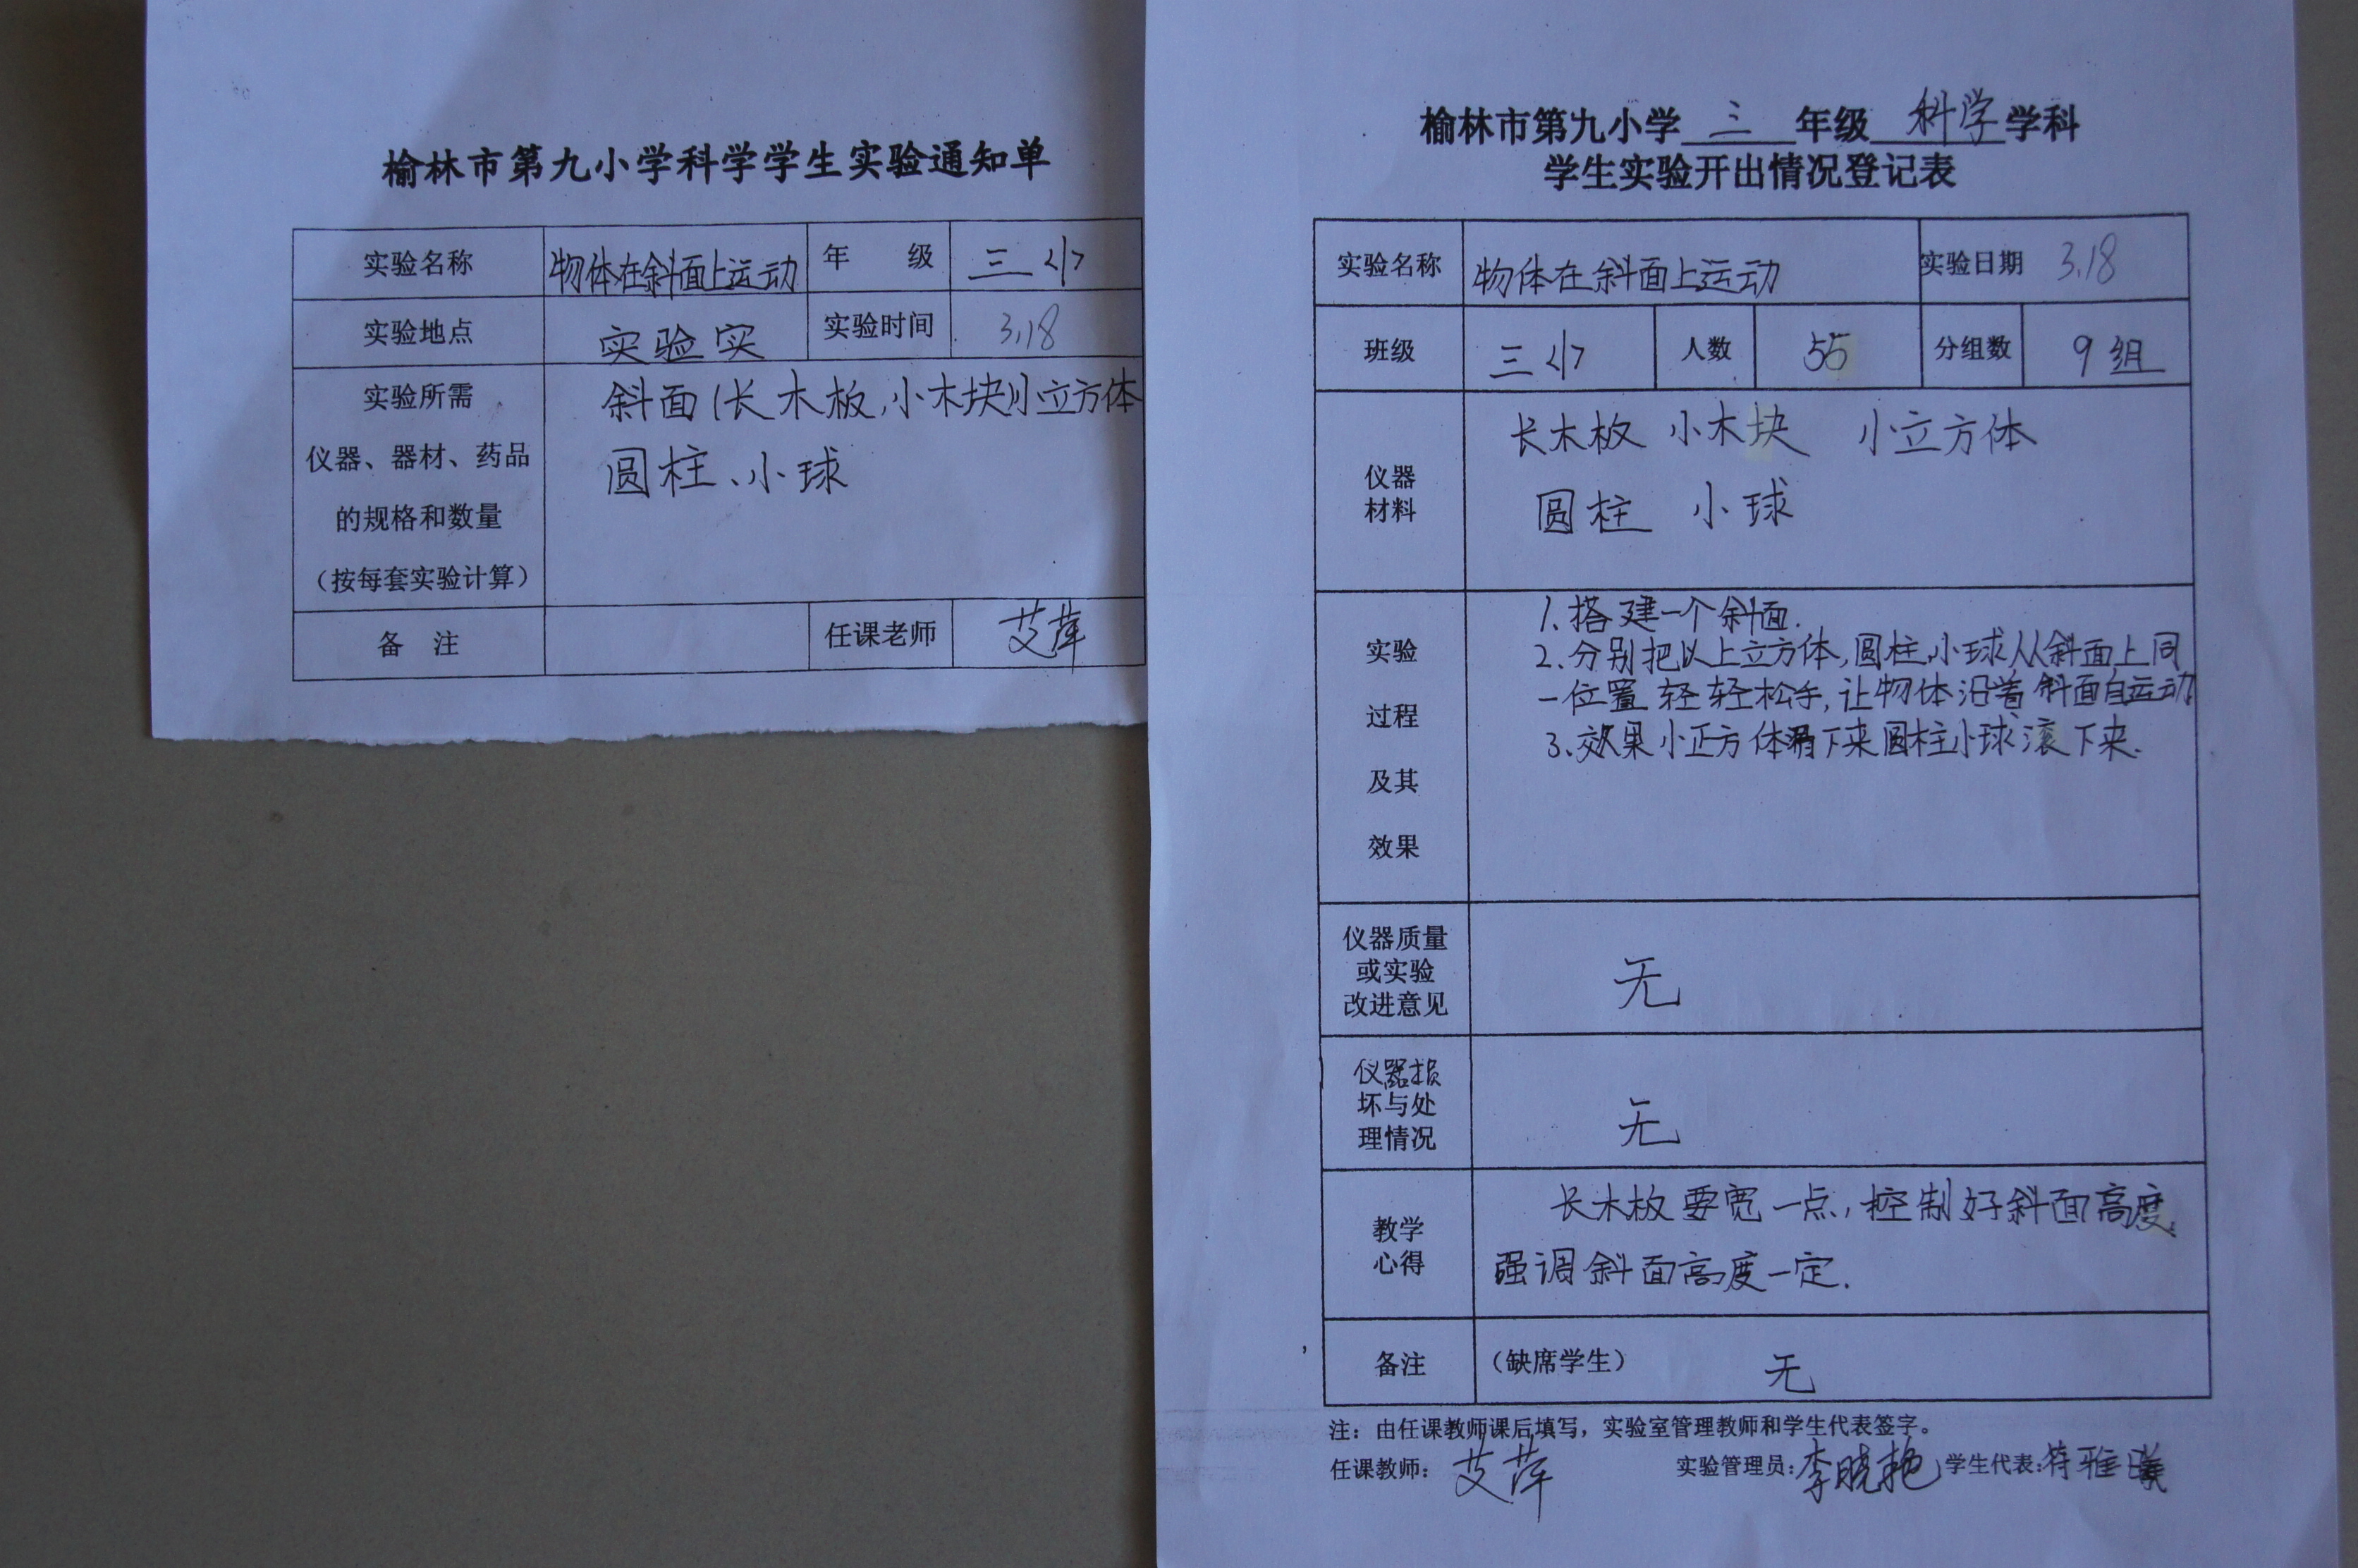 榆林市第九小学科学学生实验通知单
实验名称 物体在斜面上运动 年 级 三〈1〉
实验地点 实验实 实验时间 3.18
实验所需
仪器、器材、药品
的规格和数量
(按每套实验计算)
斜面(长木板,小木块)小立方体
圆柱、小球
备 注 任课老师 艾萍
榆林市第九小学 三 年级 科学 学科
学生实验开出情况登记表
实验名称 物体在斜面上运动 实验日期 3.18
班级 三〈1〉 人数 55 分组数 9组
仪器
材料
长木板 小木块 小立方体
圆柱 小球
实验
过程
及其
效果
1.搭建一个斜面.
2.分别把以上立方体,圆柱,小球从斜面上同
一位置轻轻松手,让物体沿着斜面自运动
3.效果小正方体滑下来圆柱小球滚下来.
仪器质量
或实验
改进意见
无
仪器损
坏与处
理情况
无
教学
心得
长木板要宽一点,控制好斜面高度,
强调斜面高度一定.
备注 (缺席学生) 无
注:由任课教师课后填写,实验室管理教师和学生代表签字。
任课教师: 艾萍 实验管理员: 李晓艳 学生代表: